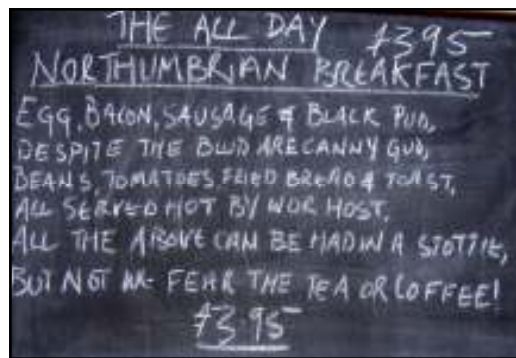 THE ALL DAY £3.95
NORTHUMBRIAN BREAKFAST
EGG, BACON, SAUSAGE & BLACK PUD,
DESPITE THE BLUD ARE CANNY GUD,
BEANS, TOMATOES FRIED BREAD & TOAST,
ALL SERVED HOT BY WOR HOST.
ALL THE ABOVE CAN BE HAD IN A STOTTIE,
BUT NOT FEHR THE TEA OR COFFEE!
£3.95